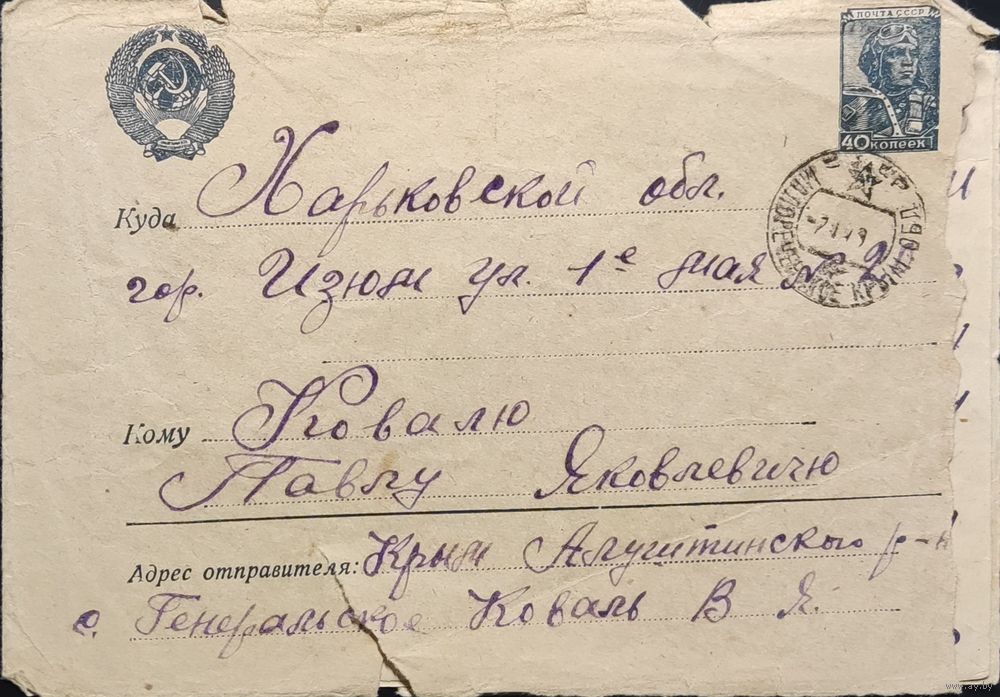 ПОЧТА СССР
40 КОПЕЕК
Куда Харьковской обл.
гор. Изюм ул. 1е мая №
Кому Ковалю
Павлу Яковлевичу
Адрес отправителя: Крым Алуштинского р-н
с. Генеральское Коваль В Я.
www.ay.by